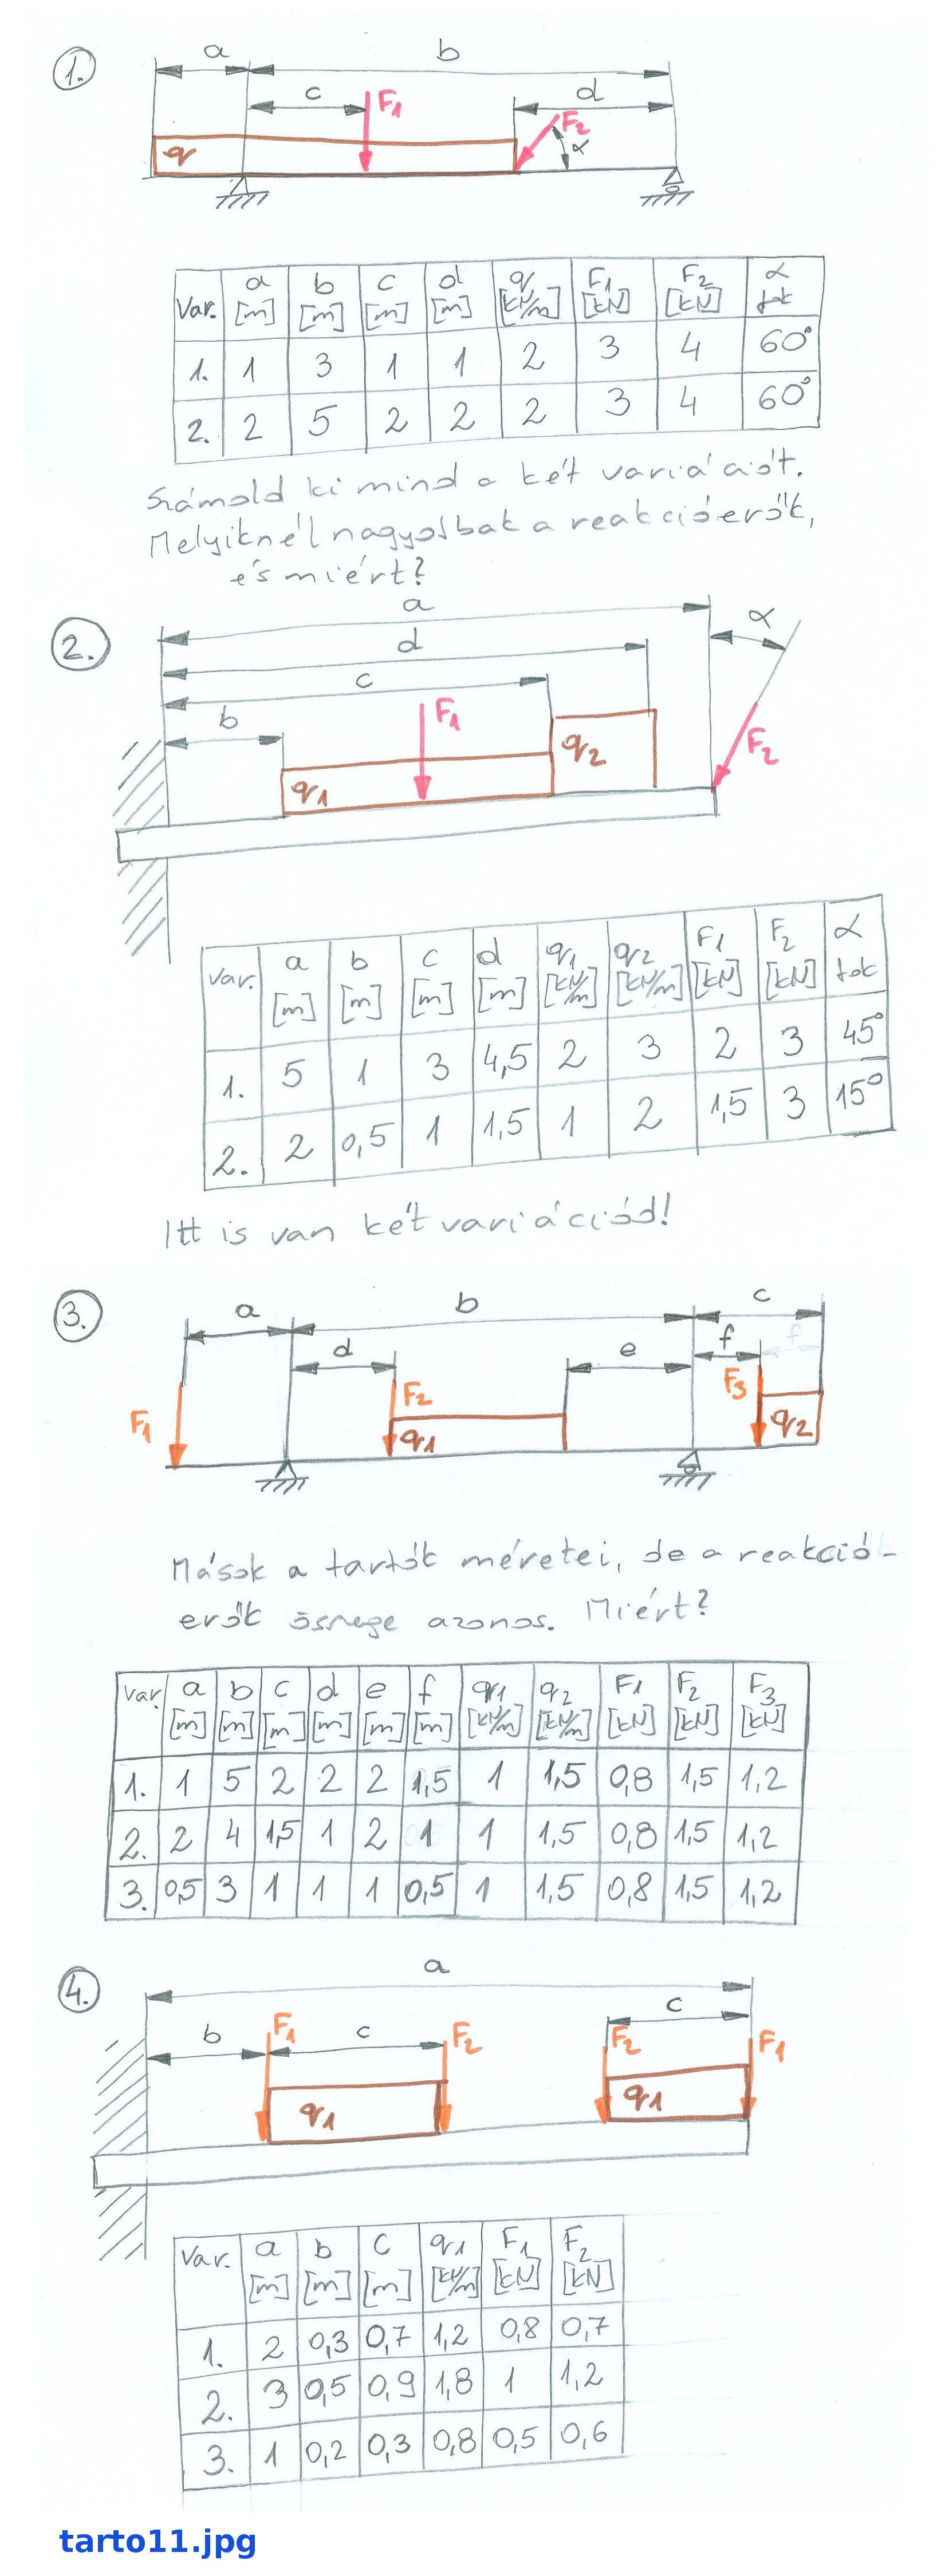 1.
a b
c F1 d
F2
q α
Var. a [m] b [m] c [m] d [m] q [kN/m] F1 [kN] F2 [kN] α fok
1. 1 3 1 1 2 3 4 60°
2. 2 5 2 2 2 3 4 60°
Számold ki mind a két variációt.
Melyiknél nagyobbak a reakcióerők,
és miért?
2.
a
α
d
c
b F1
q2 F2
q1
Var. a [m] b [m] c [m] d [m] q1 [kN/m] q2 [kN/m] F1 [kN] F2 [kN] α fok
1. 5 1 3 4,5 2 3 2 3 45°
2. 2 0,5 1 1,5 1 2 1,5 3 15°
Itt is van két variációd!
3.
a b c
d e f f
F1 F2 F3
q1 q2
Mások a tartók méretei, de a reakció-
erők összege azonos. Miért?
Var a [m] b [m] c [m] d [m] e [m] f [m] q1 [kN/m] q2 [kN/m] F1 [kN] F2 [kN] F3 [kN]
1. 1 5 2 2 2 1,5 1 1,5 0,8 1,5 1,2
2. 2 4 1,5 1 2 1 1 1,5 0,8 1,5 1,2
3. 0,5 3 1 1 1 0,5 1 1,5 0,8 1,5 1,2
4.
a
b F1 c F2 F2 c F1
q1 q1
Var. a [m] b [m] c [m] q1 [kN/m] F1 [kN] F2 [kN]
1. 2 0,3 0,7 1,2 0,8 0,7
2. 3 0,5 0,9 1,8 1 1,2
3. 1 0,2 0,3 0,8 0,5 0,6
tarto11.jpg